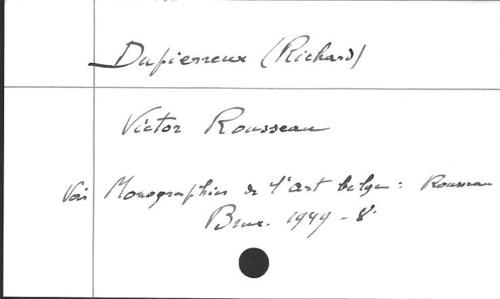 Dupierreux (Richard)
Victor Rousseau
Voir Monographies de l'Art belge : Rousseau
Brux. 1949 - 8°